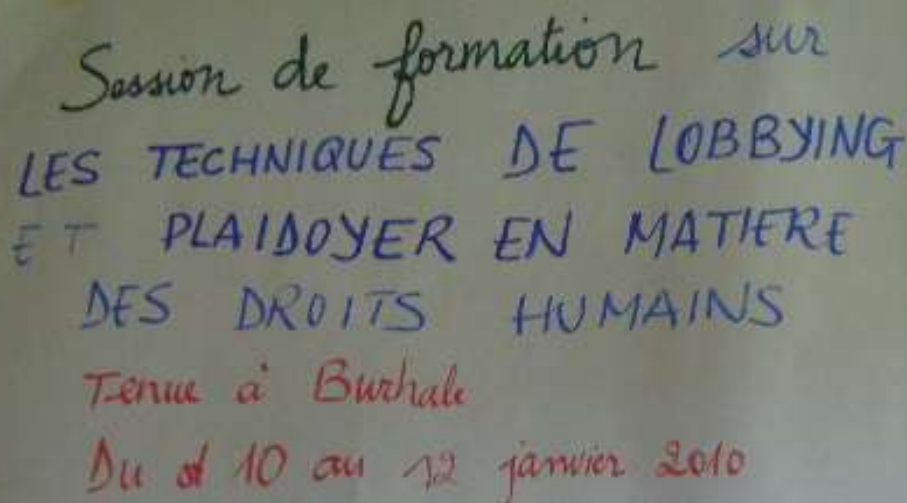 Session de formation sur
LES TECHNIQUES DE LOBBYING
ET PLAIDOYER EN MATIERE
DES DROITS HUMAINS
Tenue à Burhale
Du 10 au 12 janvier 2010